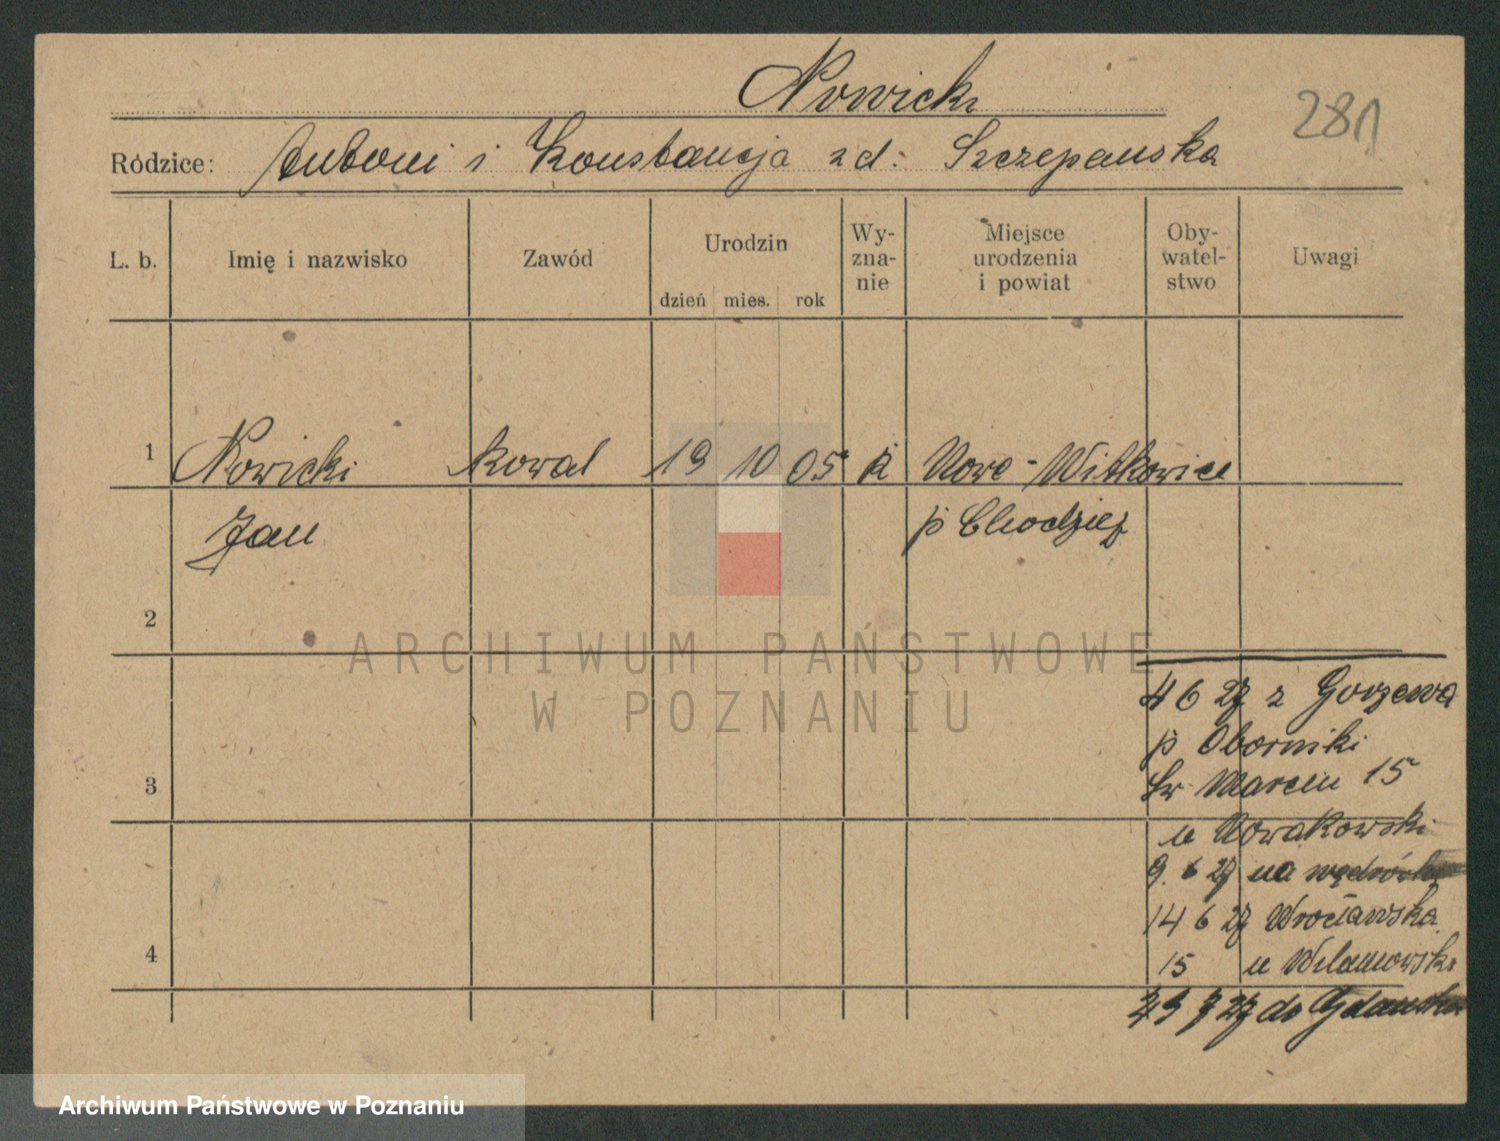 Nowicki
281
Rodzice: Antoni i Konstancja zd: Szczepanska
L. b. Imię i nazwisko Zawód Urodzin dzień mies. rok Wy-zna-nie Miejsce urodzenia i powiat Oby-watel-stwo Uwagi
1 Nowicki kowal 19 10 05 k Nowe-Witkowice
Jan p Chodzież
2
ARCHIWUM PAŃSTWOWE
W POZNANIU
4 6 27 z Gorzewa
p Oborniki
3 Św Marcin 15
u Nowakowski
9. 6 27 na wędrówkę
14 6 27 Wrocławska
4 15 u Wilamowski
7 27 do Gdańska
Archiwum Państwowe w Poznaniu